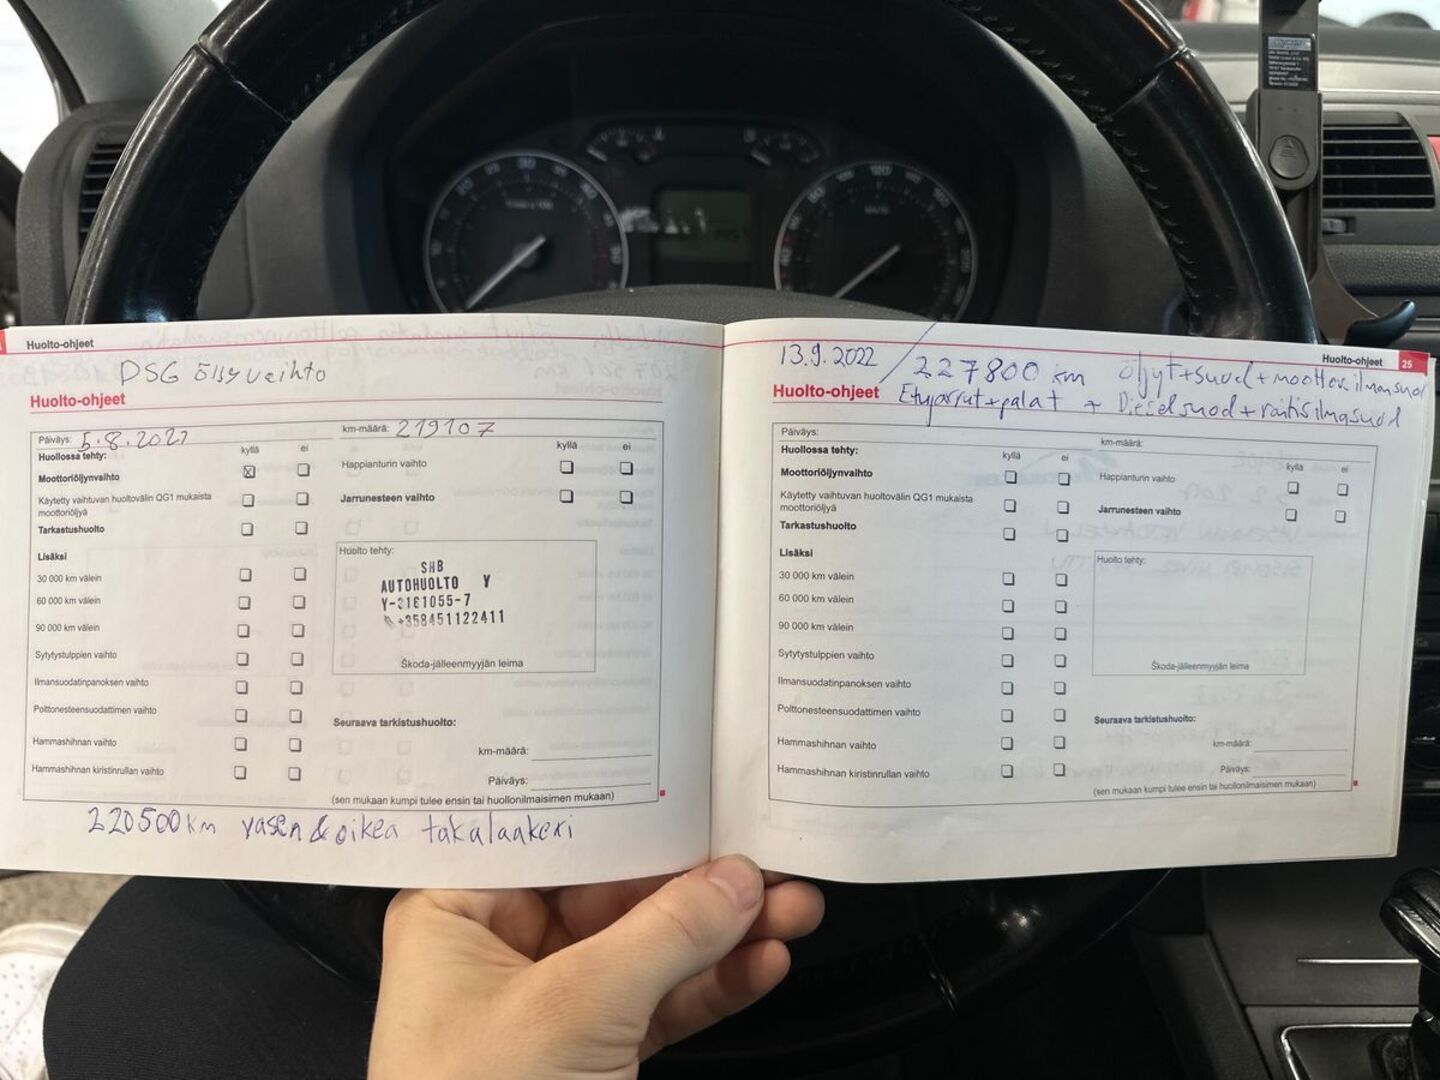 Huolto-ohjeet
DSG Öljyvaihto
Huolto-ohjeet
Päiväys: 5.8.2022 km-määrä: 219107
Huollossa tehty: kyllä ei kyllä ei
Moottoriöljynvaihto Happianturin vaihto
Käytetty vaihtuvan huoltovälin QG1 mukaista
moottoriöljyä Jarrunesteen vaihto
Tarkastushuolto
Lisäksi
30 000 km välein
60 000 km välein
90 000 km välein
Sytytystulppien vaihto
Ilmansuodatinpanoksen vaihto
Polttonesteensuodattimen vaihto
Hammashihnan vaihto
Hammashihnan kiristinrullan vaihto
Huolto tehty:
SHB
AUTOHUOLTO Y
Y-3161055-7
+358451122411
Škoda-jälleenmyyjän leima
Seuraava tarkistushuolto:
km-määrä:
Päiväys:
(sen mukaan kumpi tulee ensin tai huollonilmaisimen mukaan)
220500km vasen & oikea takalaakeri
Huolto-ohjeet 25
13.9.2022 / 227800 km Öljyt+suod+moottorilmansuod
Etujarrut+palat + Dieselsuod+raitisilmasuod
Huolto-ohjeet
Päiväys: km-määrä:
Huollossa tehty: kyllä ei kyllä ei
Moottoriöljynvaihto Happianturin vaihto
Käytetty vaihtuvan huoltovälin QG1 mukaista
moottoriöljyä Jarrunesteen vaihto
Tarkastushuolto
Lisäksi
30 000 km välein
60 000 km välein
90 000 km välein
Sytytystulppien vaihto
Ilmansuodatinpanoksen vaihto
Polttonesteensuodattimen vaihto
Hammashihnan vaihto
Hammashihnan kiristinrullan vaihto
Huolto tehty:
Škoda-jälleenmyyjän leima
Seuraava tarkistushuolto:
km-määrä:
Päiväys:
(sen mukaan kumpi tulee ensin tai huollonilmaisimen mukaan)